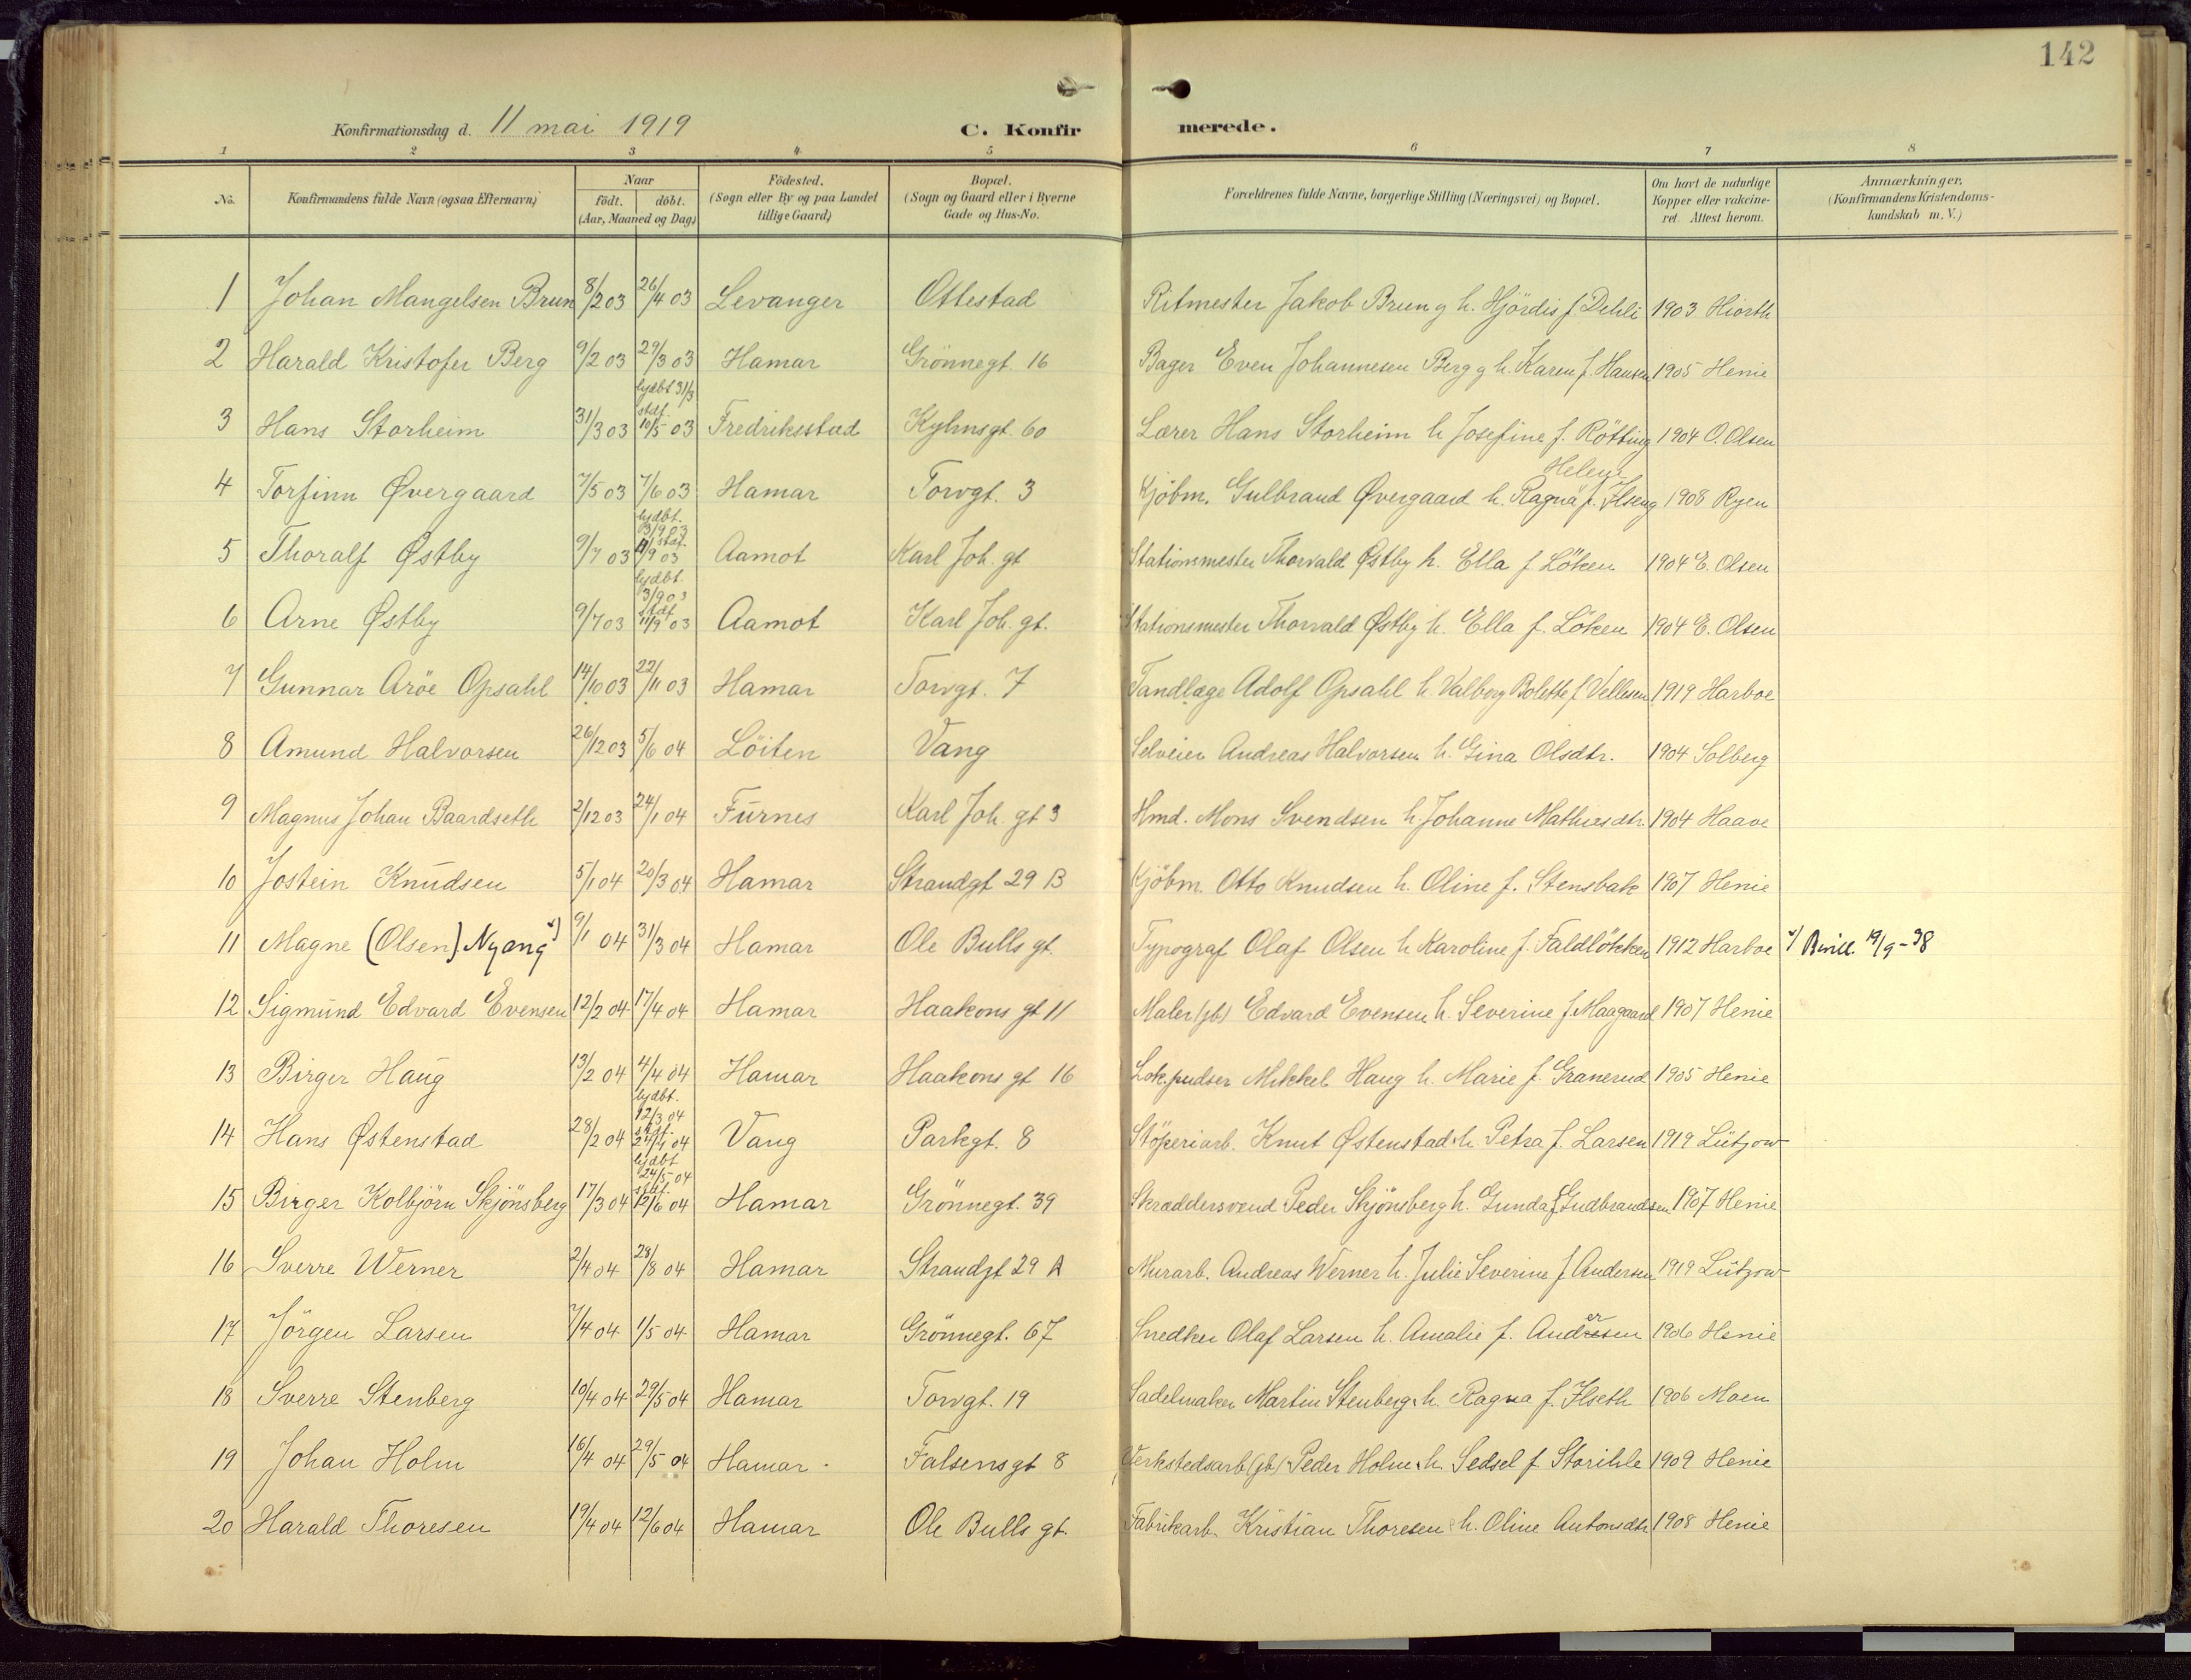 142
Konfirmationsdag d. 11 mai 1919 C. Konfirmerede.
1 2 3 4 5 6 7 8
No. Konfirmandens fulde Navn (ogsaa Efternavn) Naar födt. döbt. (Aar, Maaned og Dag) Födested. (Sogn eller By og paa Landet tillige Gaard) Bopæl. (Sogn og Gaard eller i Byerne Gade og Hus-No. Forældrenes fulde Navne, borgerlige Stilling (Næringsvei) og Bopæl. Om havt de naturlige Kopper eller vakcineret. Attest herom. Anmærkninger. (Konfirmandens Kristendomskundskab m. V.)
1 Johan Mangelsen Brun 8/2 03 26/4 03 Levanger Ottestad Ritmester Jakob Brun og h. Hjördis f Dehli 1903 Hiorth
2 Harald Kristofer Berg 9/2 03 29/3 03 Hamar Grönnegt. 16 Bager Even Johannesen Berg og h. Karen f. Hansen 1905 Henie
3 Hans Storheim 31/3 03 hjdbt 31/3 stdf. 10/5 03 Fredriksstad Kyhnsgt. 60 Lærer Hans Storheim h Josefine f. Rötting 1904 O. Olsen
4 Torfinn Øvergaard 7/5 03 7/6 03 Hamar Torvgt. 3 Kjöbm. Gulbrand Øvergaard h. Ragna Helene f. Ilseng 1908 Ryen
5 Thoralf Østby 9/7 03 hjdbt. 3/9 03 stdf. 11/9 03 Aamot Karl Joh. gt Stationsmester Thorvald Østby h. Ella f Löken 1904 E. Olsen
6 Arne Østby 9/7 03 hjdbt. 3/9 03 stdf 11/9 03 Aamot Karl Joh. gt. Stationsmester Thorvald Østby h. Ella f. Löken 1904 E. Olsen
7 Gunnar Aröe Opsahl 14/10 03 22/11 03 Hamar Torvgt. 7 Tandlæge Adolf Opsahl h. Valborg Bolette f. Vellesen 1919 Harboe
8 Amund Halvorsen 26/12 03 5/6 04 Löiten Vang Selveier Andreas Halvorsen h. Gina Olsdtr. 1904 Solberg
9 Magnus Johan Baardseth 2/12 03 24/1 04 Furnes Karl Joh. gt 3 Hmd. Mons Svendsen h. Johanne Mathiasdtr. 1904 Haave
10 Jostein Knudsen 5/1 04 20/3 04 Hamar Strandgt 29 B Kjöbm. Otto Knudsen h. Oline f. Stensbak 1907 Henie
11 Magne (Olsen) Nyang x) 9/1 04 31/3 04 Hamar Ole Bulls gt. Typograf Olaf Olsen h Karoline f. Faldlökken 1912 Harboe x) Bevill. 19/9-38
12 Sigmund Edvard Evensen 12/2 04 17/4 04 Hamar Haakons gt 11 Maler (jb) Edvard Evensen h. Severine f. Maagaard 1907 Henie
13 Birger Haug 13/2 04 4/4 04 Hamar Haakons gt 16 Lok.pudser Mikkel Haug h. Marie f. Granerud 1905 Henie
14 Hans Østenstad 28/2 04 hjdbt. 12/3 04 stdf. 24/4 04 Vang Parkgt. 8 Stöperiarb. Knut Østenstad h. Petra f. Larsen 1919 Lützow
15 Birger Kolbjörn Skjönsberg 17/3 04 hjdbt 24/5 04 stdf. 12/6 04 Hamar Grönnegt. 39 Skræddersvend Peder Skjönsberg h. Gunda f. Gudbrandsen 1907 Henie
16 Sverre Werner 2/4 04 28/8 04 Hamar Strandgt 29 A Murarb. Andreas Werner h. Julie Severine f Andersen 1919 Lützow
17 Jörgen Larsen 7/4 04 1/5 04 Hamar Grönnegt. 67 Snedker Olaf Larsen h. Amalie f. Andersen 1906 Henie
18 Sverre Stenberg 10/4 04 29/5 04 Hamar Torvgt. 19 Sadelmaker Martin Stenberg h. Ragna f. Ilseth 1906 Moen
19 Johan Holm 16/4 04 29/5 04 Hamar Falsens gt 8 Verkstedsarb (jb) Peder Holm h. Sedsel f Storihle 1909 Henie
20 Harald Thoresen 19/4 04 12/6 04 Hamar Ole Bulls gt. Fabrikarb. Kristian Thoresen h. Oline Antonsdtr 1908 Henie